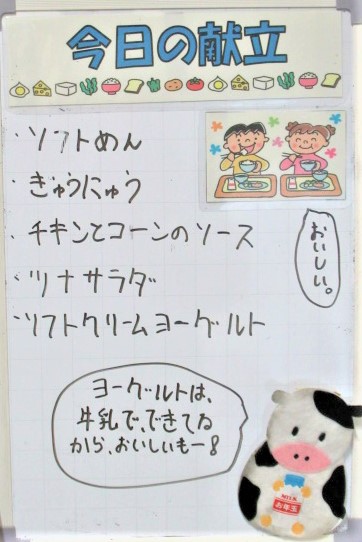 今日の献立
・ソフトめん
・ぎゅうにゅう
・チキンとコーンのソース
・ツナサラダ
・ソフトクリームヨーグルト
おいしい。
ヨーグルトは、
牛乳で、できてる
から、おいしいもー!
MILK
お年玉